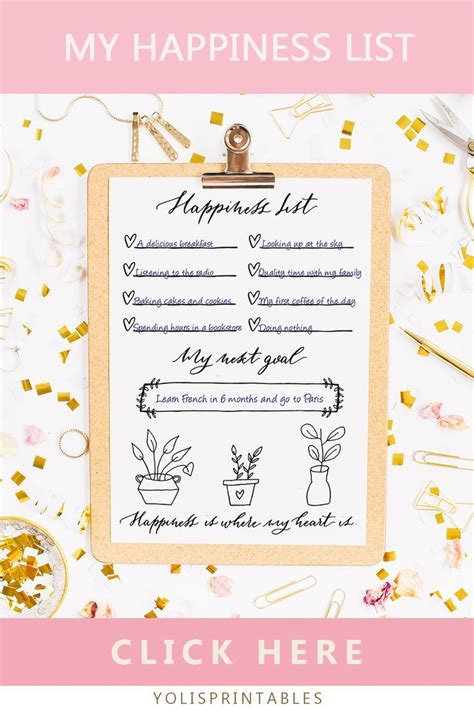 MY HAPPINESS LIST
Happiness list
A delicious breakfast
Looking up at the sky
Listening to the radio
Quality time with my family
Baking cakes and cookies
My first coffee of the day
Spending hours in a bookstore
Doing nothing
My next goal
Learn French in 6 months and go to Paris
Happiness is where my heart is
CLICK HERE
YOLISPRINTABLES